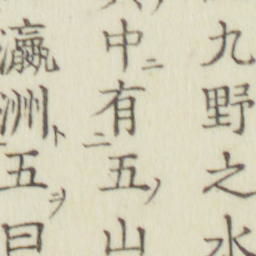 九野之水
中ニ有二五ノ山
瀛洲ト五ヲ曰